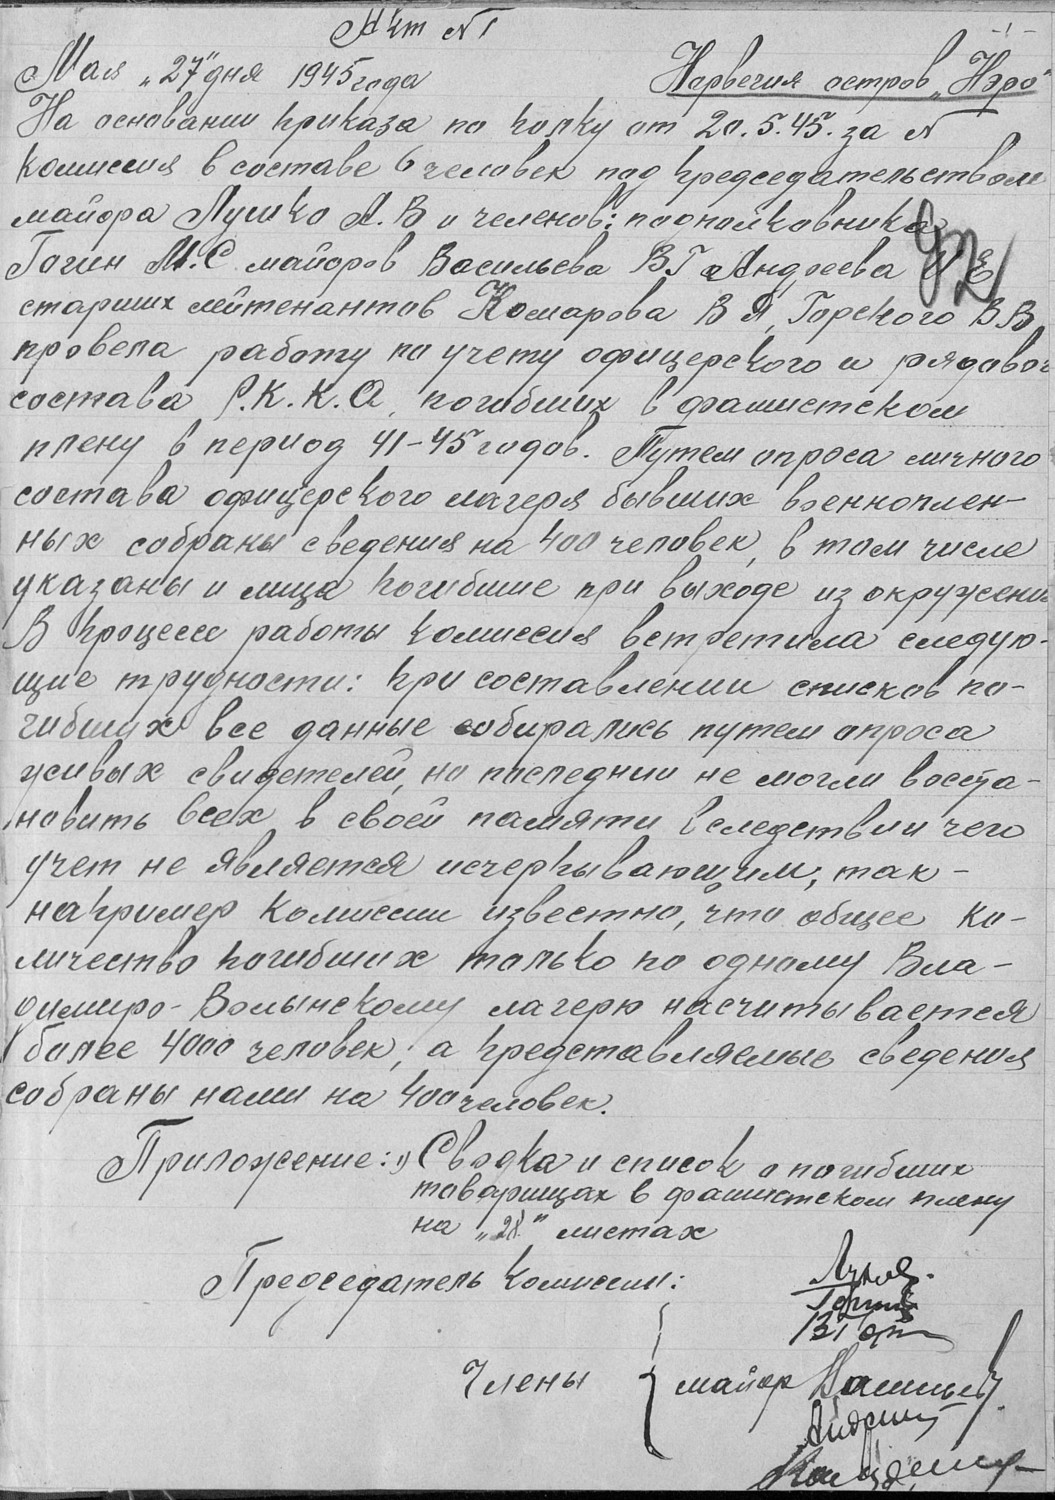 Акт №1
-1-
Мая „27" дня 1945 года Норвегия остров „Нэро"
На основании приказа по полку от 20.5.45. за №
комиссия в составе 6 человек под председательством
майора Лушко А.В и челенов: подполковника
92
Гогин М.С майоров Васильева В Г Андреева Е
старших лейтенантов Комарова В Я, Горского В В
провела работу по учету офицерского и рядовог
состава Р.К.К.А, погибших в фашистском
плену в период 41-45 годов. Путем опроса личного
состава офицерского лагеря бывших военноплен-
ных собраны сведения на 400 человек, в том числе
указаны и лица погибшие при выходе из окружени
В процессе работы комиссия встретила следую-
щие трудности: при составлении списков по-
гибших все данные собирались путем опроса
живых свидетелей, но последнии не могли воста-
новить всех в своей памяти вследствии чего
учет не является исчерпывающим, так-
например комиссии известно, что общее ко-
личество погибших только по одному Вла-
димиро-Волынскому лагерю насчитывается
более 4000 человек, а представляемые сведения
собраны нами на 400 человек.
Приложение: 1) Сводка и список о погибших
товарищах в фашистском плену
на „28" листах
Председатель комиссии:
Члены майор